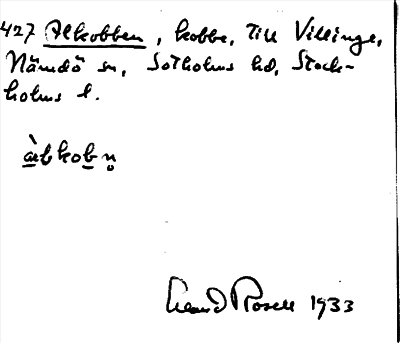 427 Alkobben, kobbe, till Villinge,
Nämdö sn, Sotholms hd, Stock-
holms l.
Rosell 1933